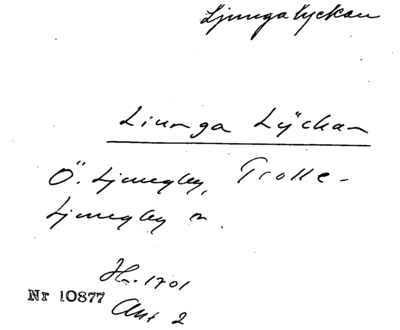 Ljungalyckan
Liunga Lÿckan
Ö. Ljungby, Trolle-
Ljungby n.
Hs. 1701
Nr 10877
Akt 2